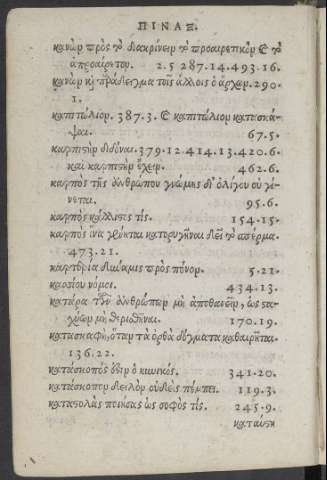 ΠΙΝΑΞ.
κανὼν πρὸς τὸ διακρίνειν τὸ προαιρετικὸν & τὸ
ἀπροαίρετον. 2.5 287.14.493.16.
κανὼν καὶ παράδειγμα τοῖς ἄλλοις ὁ ἄρχων. 290.
1.
καπιτώλιον. 387.3. & καπιτώλιον κατασκά-
ψαι. 67.5.
καρπιστὴν διδόναι. 379.12 414.13.420.6.
καὶ καρπιστὴν ἔχειν. 462.6.
καρπὸς τῆς ἀνθρώπου γνώμης δι' ὀλίγου οὐ γί-
νεται. 95.6.
καρπὸς κάλλιστος τίς. 154.15.
καρπὸς ἵνα γένηται κατορυγῆναι δεῖ τὸ σπέρμα.
473.21.
καρτερία δύναμις πρὸς πόνον. 5.21.
κασσίου νόμοι. 434.13.
κατάρα τῶν ἀνθρώπων μὴ ἀποθανεῖν, ὡς στα-
χύων μὴ θερισθῆναι. 170.19.
κατασκαφὴ, ὅταν τὰ ὀρθὰ δόγματα καθαιρῆται.
136.22.
κατάσκοπός ἐστιν ὁ κυνικός. 341.20.
κατάσκοπον δειλὸν οὐδεὶς πέμπει. 119.3.
καταστολὰς ποιήσας ὡς σοφὸς τίς. 245.9.